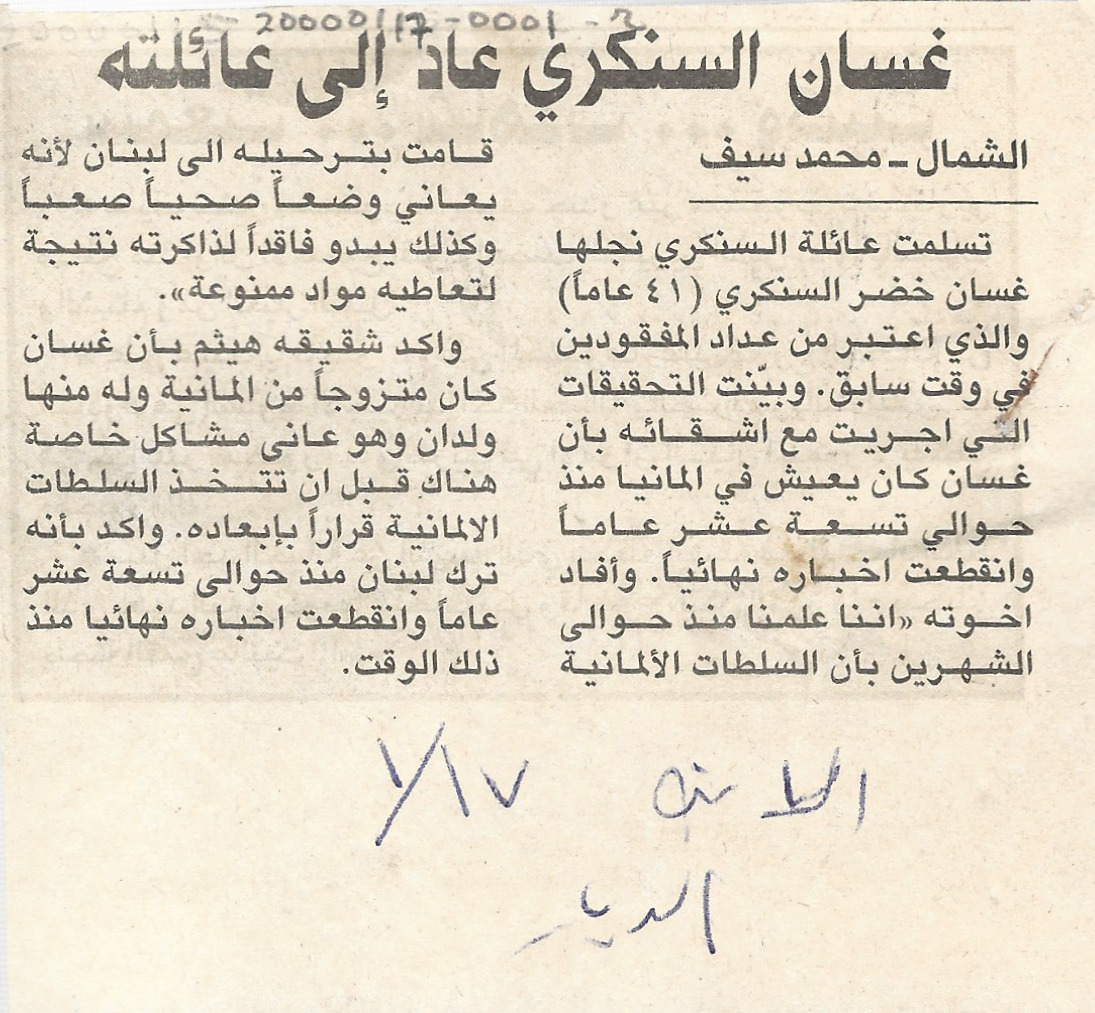 20000117-0001-2
غسان السنكري عاد إلى عائلته
الشمال ـ محمد سيف
تسلمت عائلة السنكري نجلها
غسان خضر السنكري (٤١ عاماً)
والذي اعتبر من عداد المفقودين
في وقت سابق. وبيّنت التحقيقات
التي اجريت مع اشقائه بأن
غسان كان يعيش في المانيا منذ
حوالي تسعة عشر عاماً
وانقطعت اخباره نهائياً. وأفاد
اخوته «اننا علمنا منذ حوالى
الشهرين بأن السلطات الألمانية
قامت بترحيله الى لبنان لأنه
يعاني وضعاً صحياً صعباً
وكذلك يبدو فاقداً لذاكرته نتيجة
لتعاطيه مواد ممنوعة».
واكد شقيقه هيثم بأن غسان
كان متزوجاً من المانية وله منها
ولدان وهو عانى مشاكل خاصة
هناك قبل ان تتخذ السلطات
الالمانية قراراً بإبعاده. واكد بأنه
ترك لبنان منذ حوالى تسعة عشر
عاماً وانقطعت اخباره نهائيا منذ
ذلك الوقت.
١/١٧
الديار